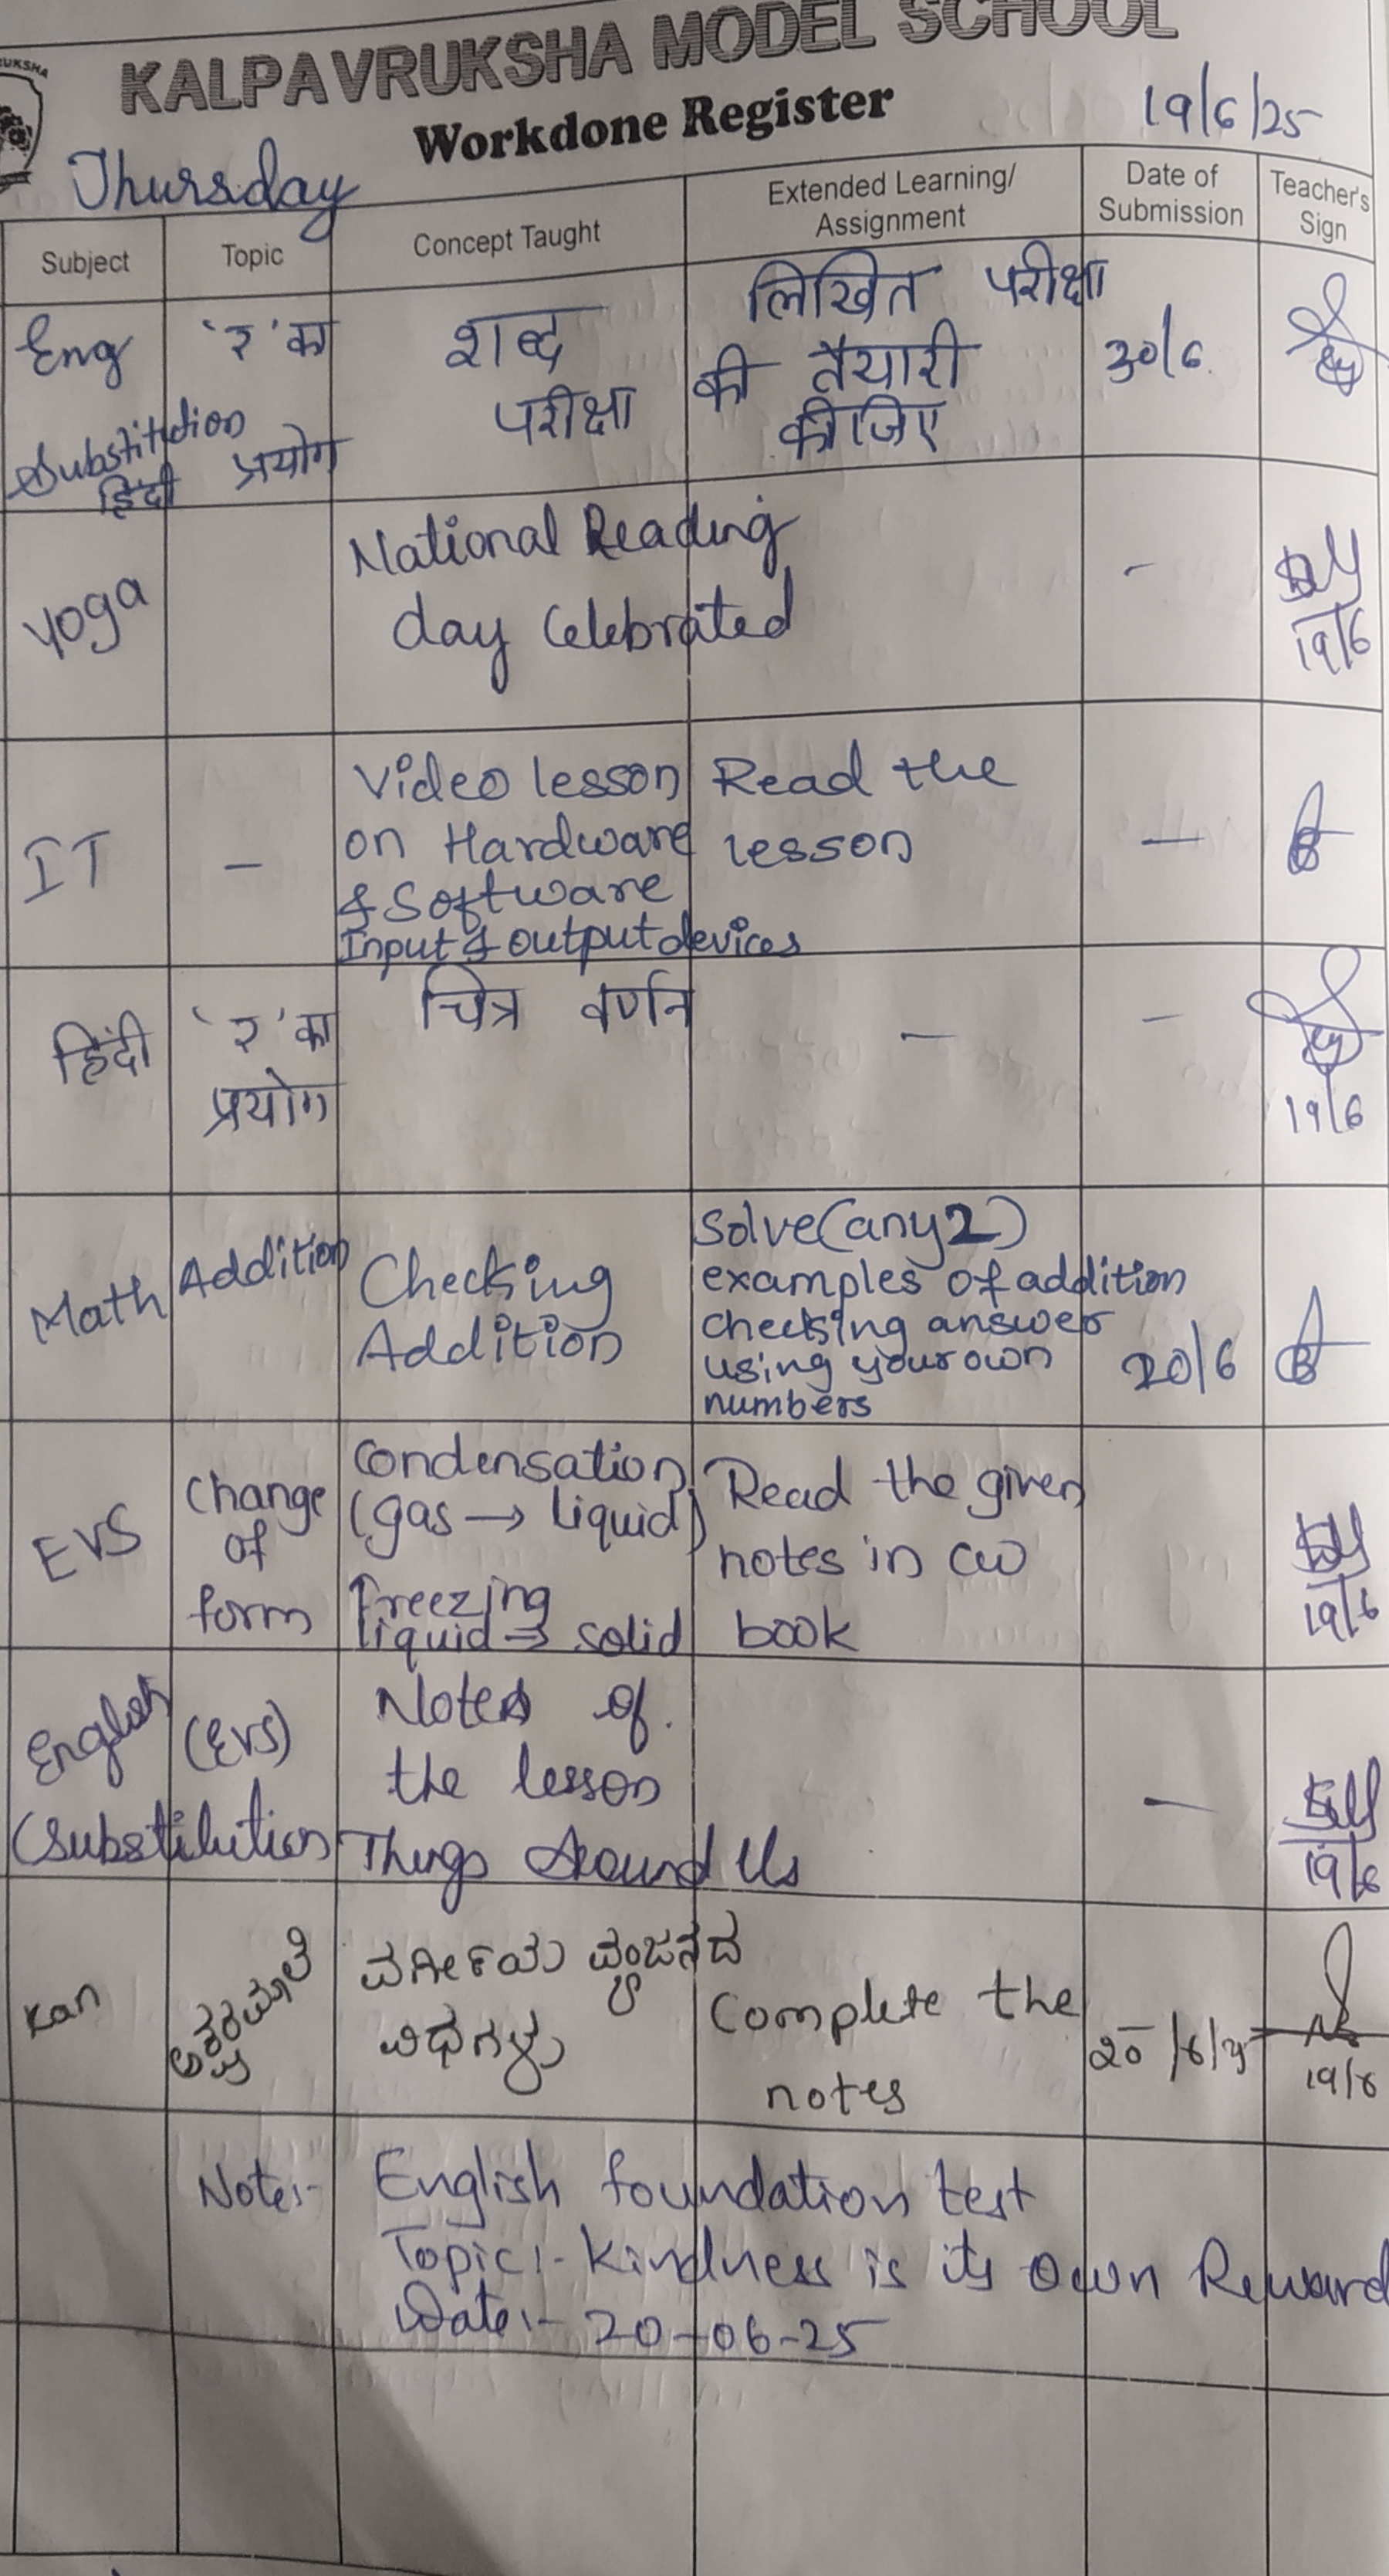 KALPAVRUKSHA MODEL SCHOOL
Workdone Register
19/6/25
Thursday
Subject
Topic
Concept Taught
Extended Learning/
Assignment
Date of
Submission
Teacher's
Sign
Eng
Substitution
हिंदी
'र' का
प्रयोग
शब्द
परीक्षा
लिखित परीक्षा
की तैयारी
कीजिए
30/6.
Yoga
National Reading
day Celebrated
-
19/6
IT
-
Video lesson
on Hardware
& Software
Input & output devices
Read the
lesson
-
हिंदी
'र' का
प्रयोग
चित्र वर्णन
-
-
19/6
Math
Addition
Checking
Addition
Solve (any 2)
examples of addition
checking answer
using your own
numbers
20/6
EVS
Change
of
form
Condensation
(gas → liquid)
Freezing
liquid → solid
Read the given
notes in cw
book
19/6
English
(Substitution
(EVS)
Notes of
the lesson
Things Around Us
-
19/6
Kan
ಅಕ್ಷರಮಾಲೆ
ವರ್ಗೀಯ ವ್ಯಂಜನದ
ವಿಧಗಳು
Complete the
notes
20/6/25
19/6
Note:-
English foundation test
Topic:- Kindness is its Own Reward
Date:- 20-06-25